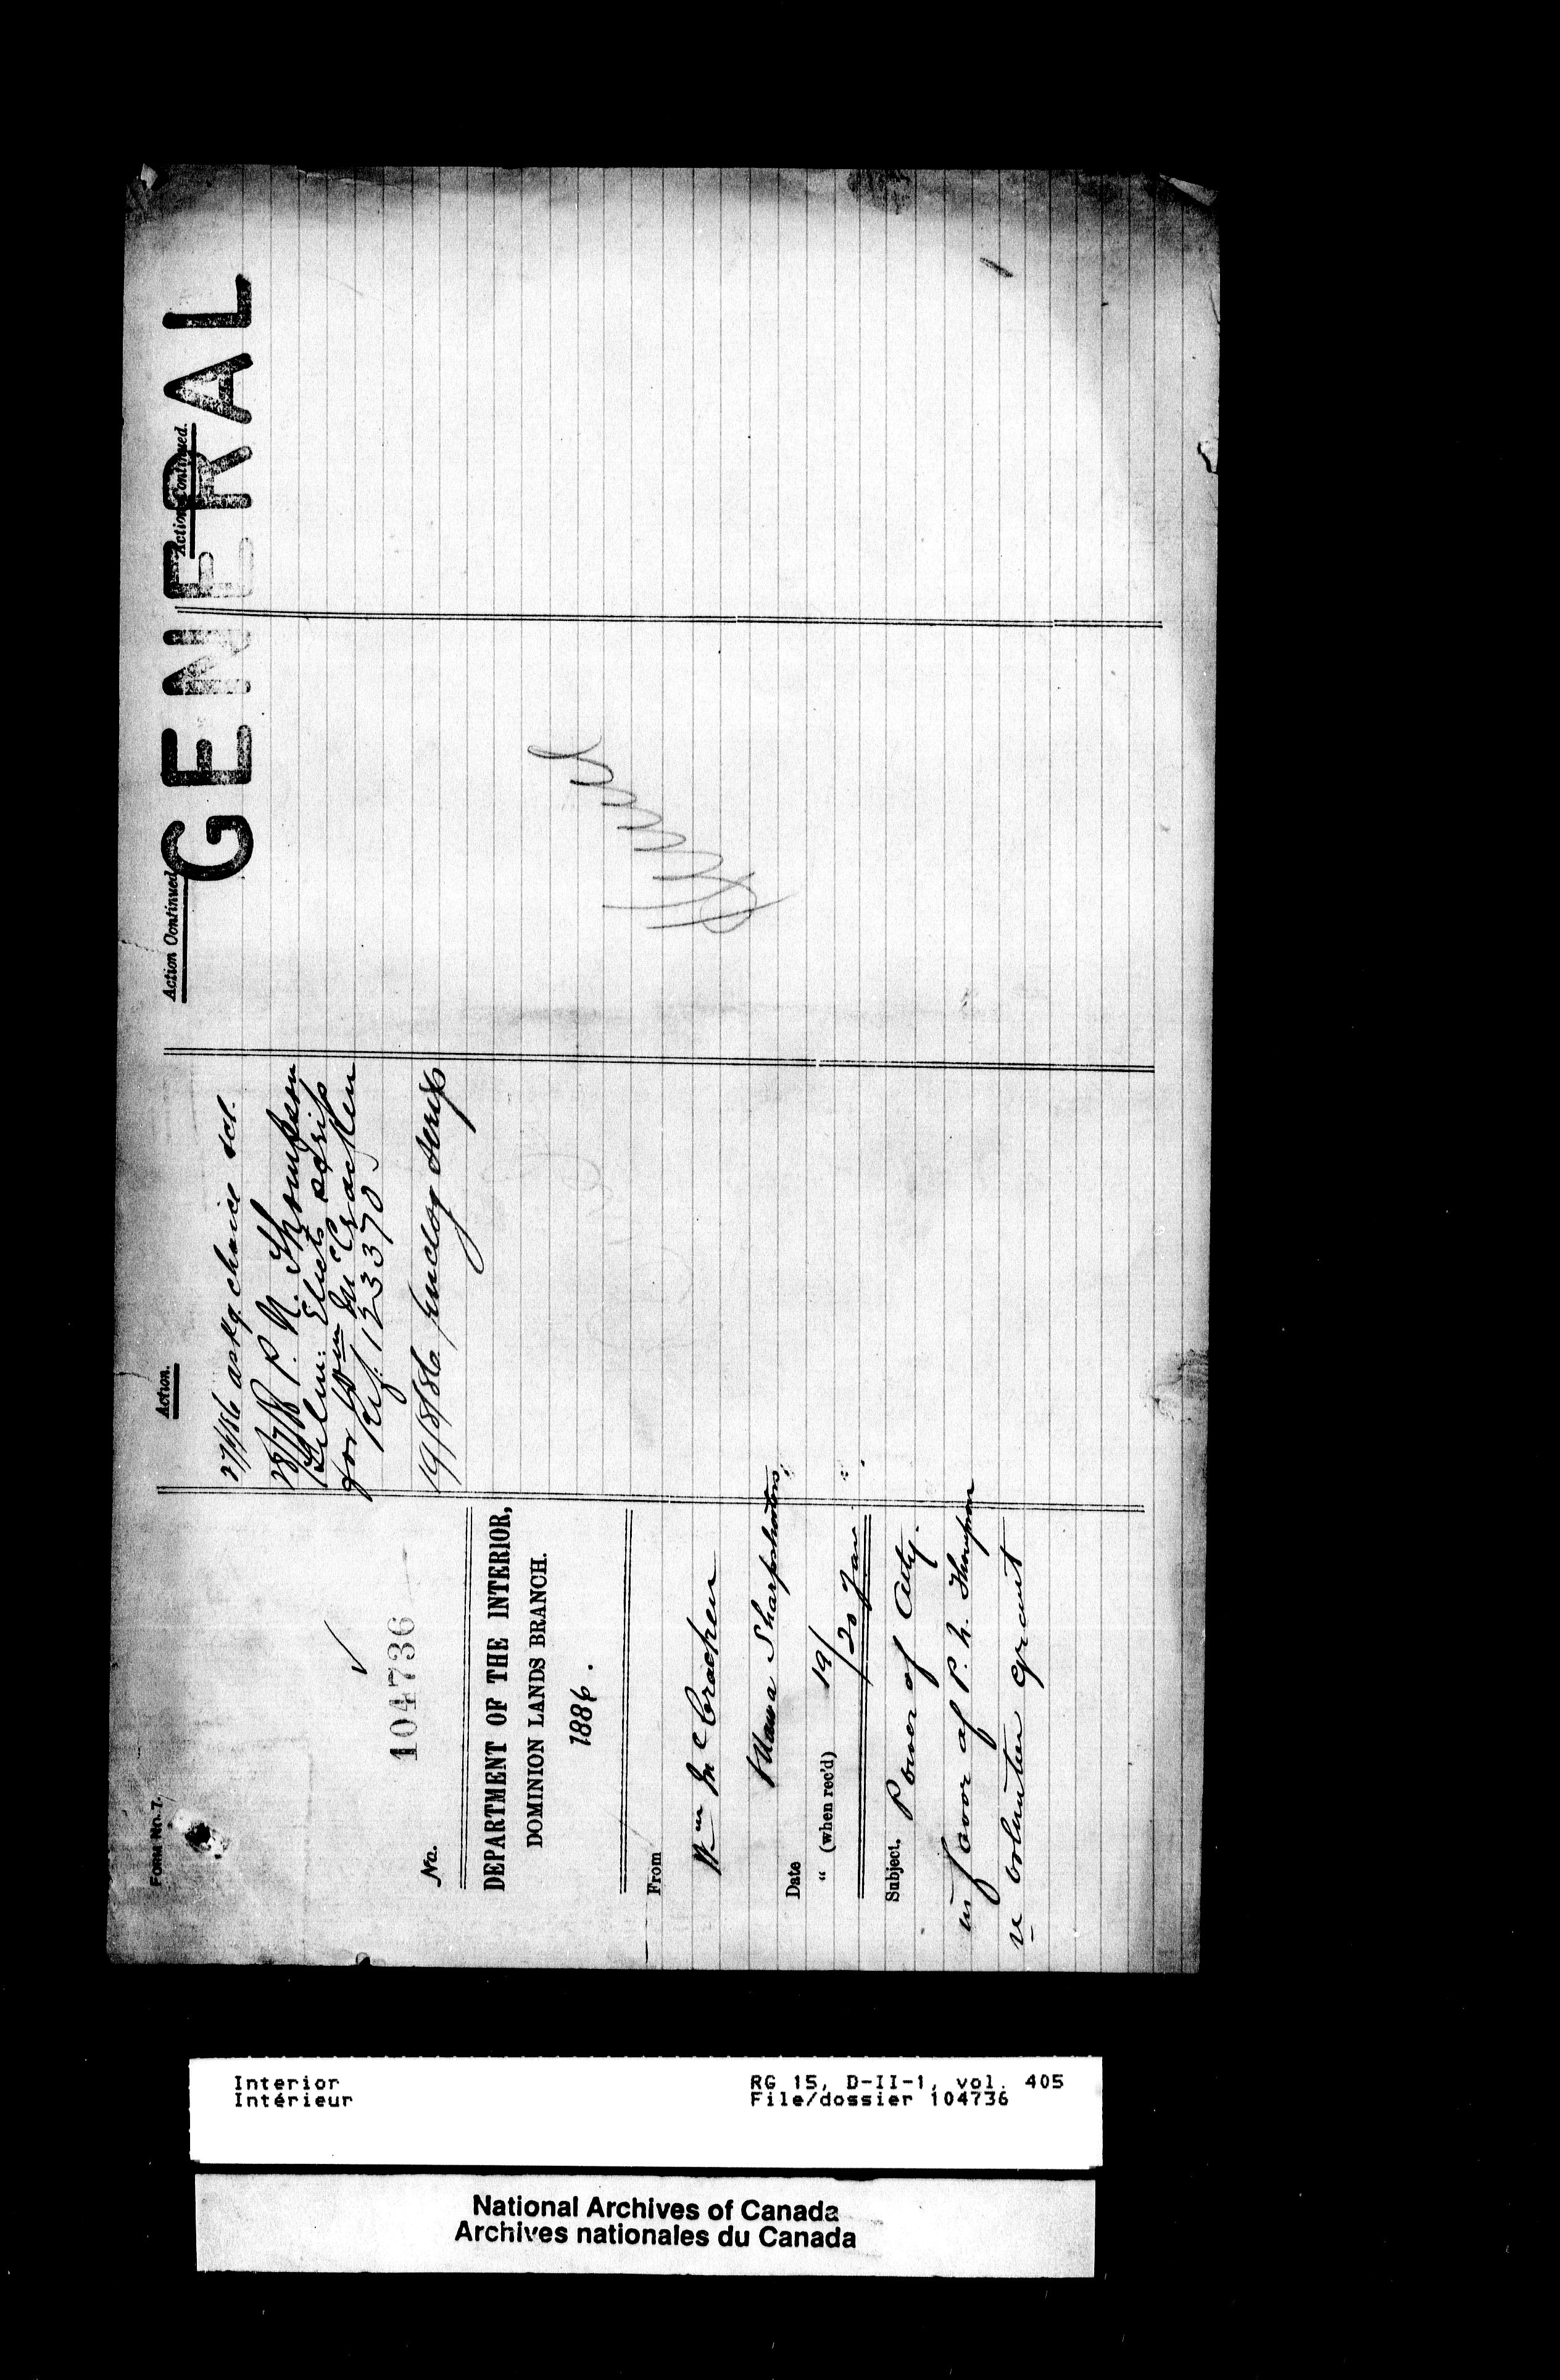 FORM No. 7.
104736
No.
DEPARTMENT OF THE INTERIOR,
DOMINION LANDS BRANCH.
1886.
From
Wm McCracken
Ottawa Sharpshooters,
Date 19/
" (when rec'd) 20 Jan
Subject. Power of Atty.
in favor of P. N. Thompson
re volunteer grant
Action.
27/4/86 askg. choice
P. N. Thompson
Elects scrip
for Wm McCracken
Ref: 123370
19/8/86 Enclog scrip
Action Continued.
GENERAL
Action Continued.
Interior
Intérieur
RG 15, D-II-1, vol. 405
File/dossier 104736
National Archives of Canada
Archives nationales du Canada